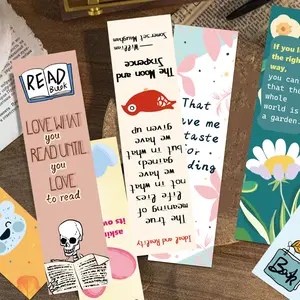 READ
Book
LOVE WHAT
you
READ UNTIL
you
LOVE
to read
Ideal and Reality
The true
meaning of
life lies
not in what
we have
gained
but in what
we have
given up
The Moon and
Sixpence
——William
Somerset Maugham
That
ve me
taste
or
ding
If you l
the right
way,
you can
that the
whole
world is
a garden.
Book